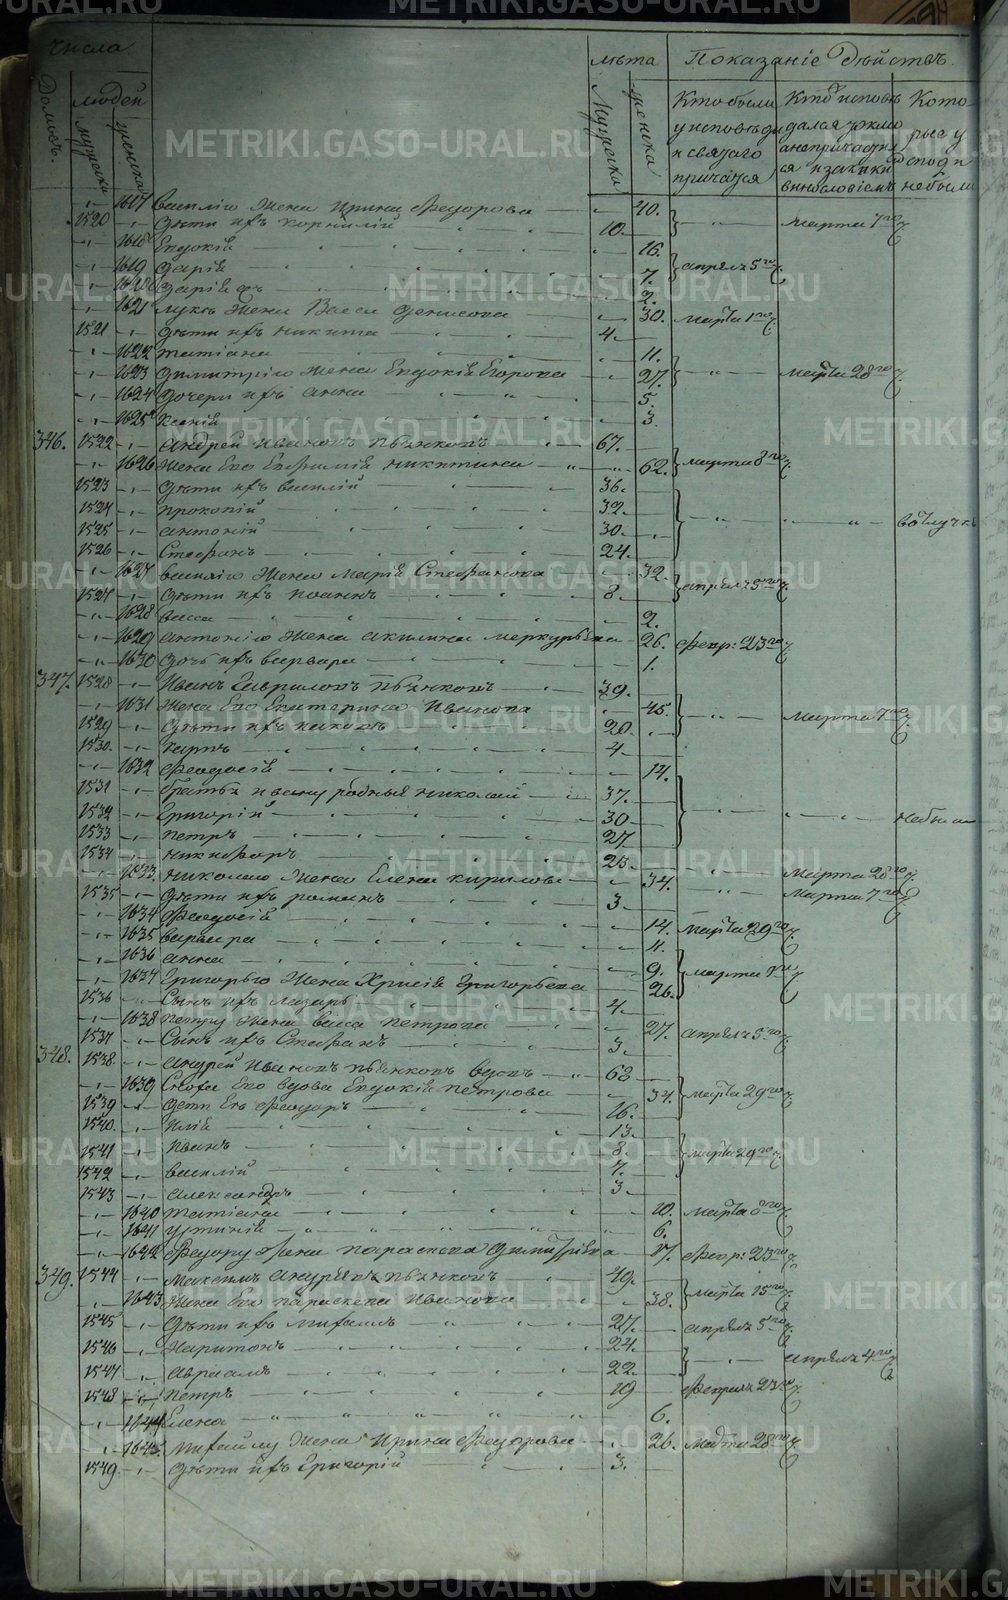 числа
лѣта
Показанiе дѣйствъ.
Домовъ.
людей
мужеска
женска
Мужеска
женска
Кто были
у исповѣди
и святаго
причастiя
Кто исповѣ
дался токмо
а не причастил
ся и за каки
винословiемъ
Кото-
рые у
исповѣди
не были
1617 Василiю Жена Ирина Федорова 40.
1520 Дѣти ихъ Корнилiй 10. марта 7го
1618 Евдокiя 16.
1619 Дарiя 7. апрѣля 5го
1620 2.
1621 Луке Жена Васса Денисова 30. марта 1го
1521 Дѣти ихъ Никита 4.
1622 Татiана 11.
1623 Димитрiю Жена Евдокiя Егорова 27. марта 28го
1624 Дочери ихъ Анна 5.
1625 Ксенiя 3.
346. 1522 Андрей Ивановъ Пьянковъ 67.
1626 Жена Его Евфимiя Никитина 62. марта 8го
1523 Дѣти ихъ Василiй 36.
1524 Прокопiй 32.
1525 Антонiй 30. въ отлучкѣ
1526 Стефанъ 24.
1627 Василiю Жена Марiя Стефанова 32.
1527 Дѣти ихъ Иоаннъ 8. апрѣля 5го
1628 Васса 2.
1629 Антонiю Жена Акилина Меркурьева 26. Февр: 23го
1630 Дочь ихъ Варвара 1.
347. 1528 Иванъ Гавриловъ Пьянковъ 39.
1631 Жена Его Екатерина Иванова 45.
1529 Дѣти ихъ 20. Марта 7го
1530 Карпъ 4.
1632 Феодосiя 14.
1531 Братья Ивану родныя Николай 37.
1532 Григорiй 30 не были
1533 Петръ 27
1534 Никифоръ 25.
1633 Николаю Жена Елена Кирилова 34. Марта 28го
1535 Дѣти ихъ Романъ 3. Марта 7го
1634 Феодосiя 14. Марта 29го
1635 Варвара 11.
1636 Анна 9. марта 1го
1637 Григорью Жена Хрисiя Григорьева 26.
1536 Сынъ ихъ Лазарь 4.
1638 Петру Жена Васса Петрова 27. апрѣля 5го
1537 Сынъ ихъ Стефанъ 3.
348. 1538. Андрей Ивановъ Пьянковъ вдовъ 62
1639 Сноха Его вдова Евдокiя Петрова 34. марта 29го
1539 Дети Ея Феодоръ 16.
1540. Илiя 13.
1541 Иванъ 8. марта 29го
1542 Василiй 7.
1543 Александръ 3
1640 Татiана 10. марта 8го
1641 Устинiя 6.
1642 Федору Жена Параскева Димитрiева 17. Февр: 23го
349. 1544 Максимъ Андрѣевъ Пьянковъ 49.
1643 Жена Его Параскева Иванова 38. Марта 15го
1545 Дѣти ихъ Михаилъ 27. апрѣля 5го
1546 Харитонъ 24.
1547 Авраамъ 22. апрѣля 4го
1548 Петръ 19 Февраля 23го
1644 Елена 6.
1645 Михайлу Жена Ирина Федорова 26. Марта 28го
1549 Дѣти ихъ Григорiй 3.